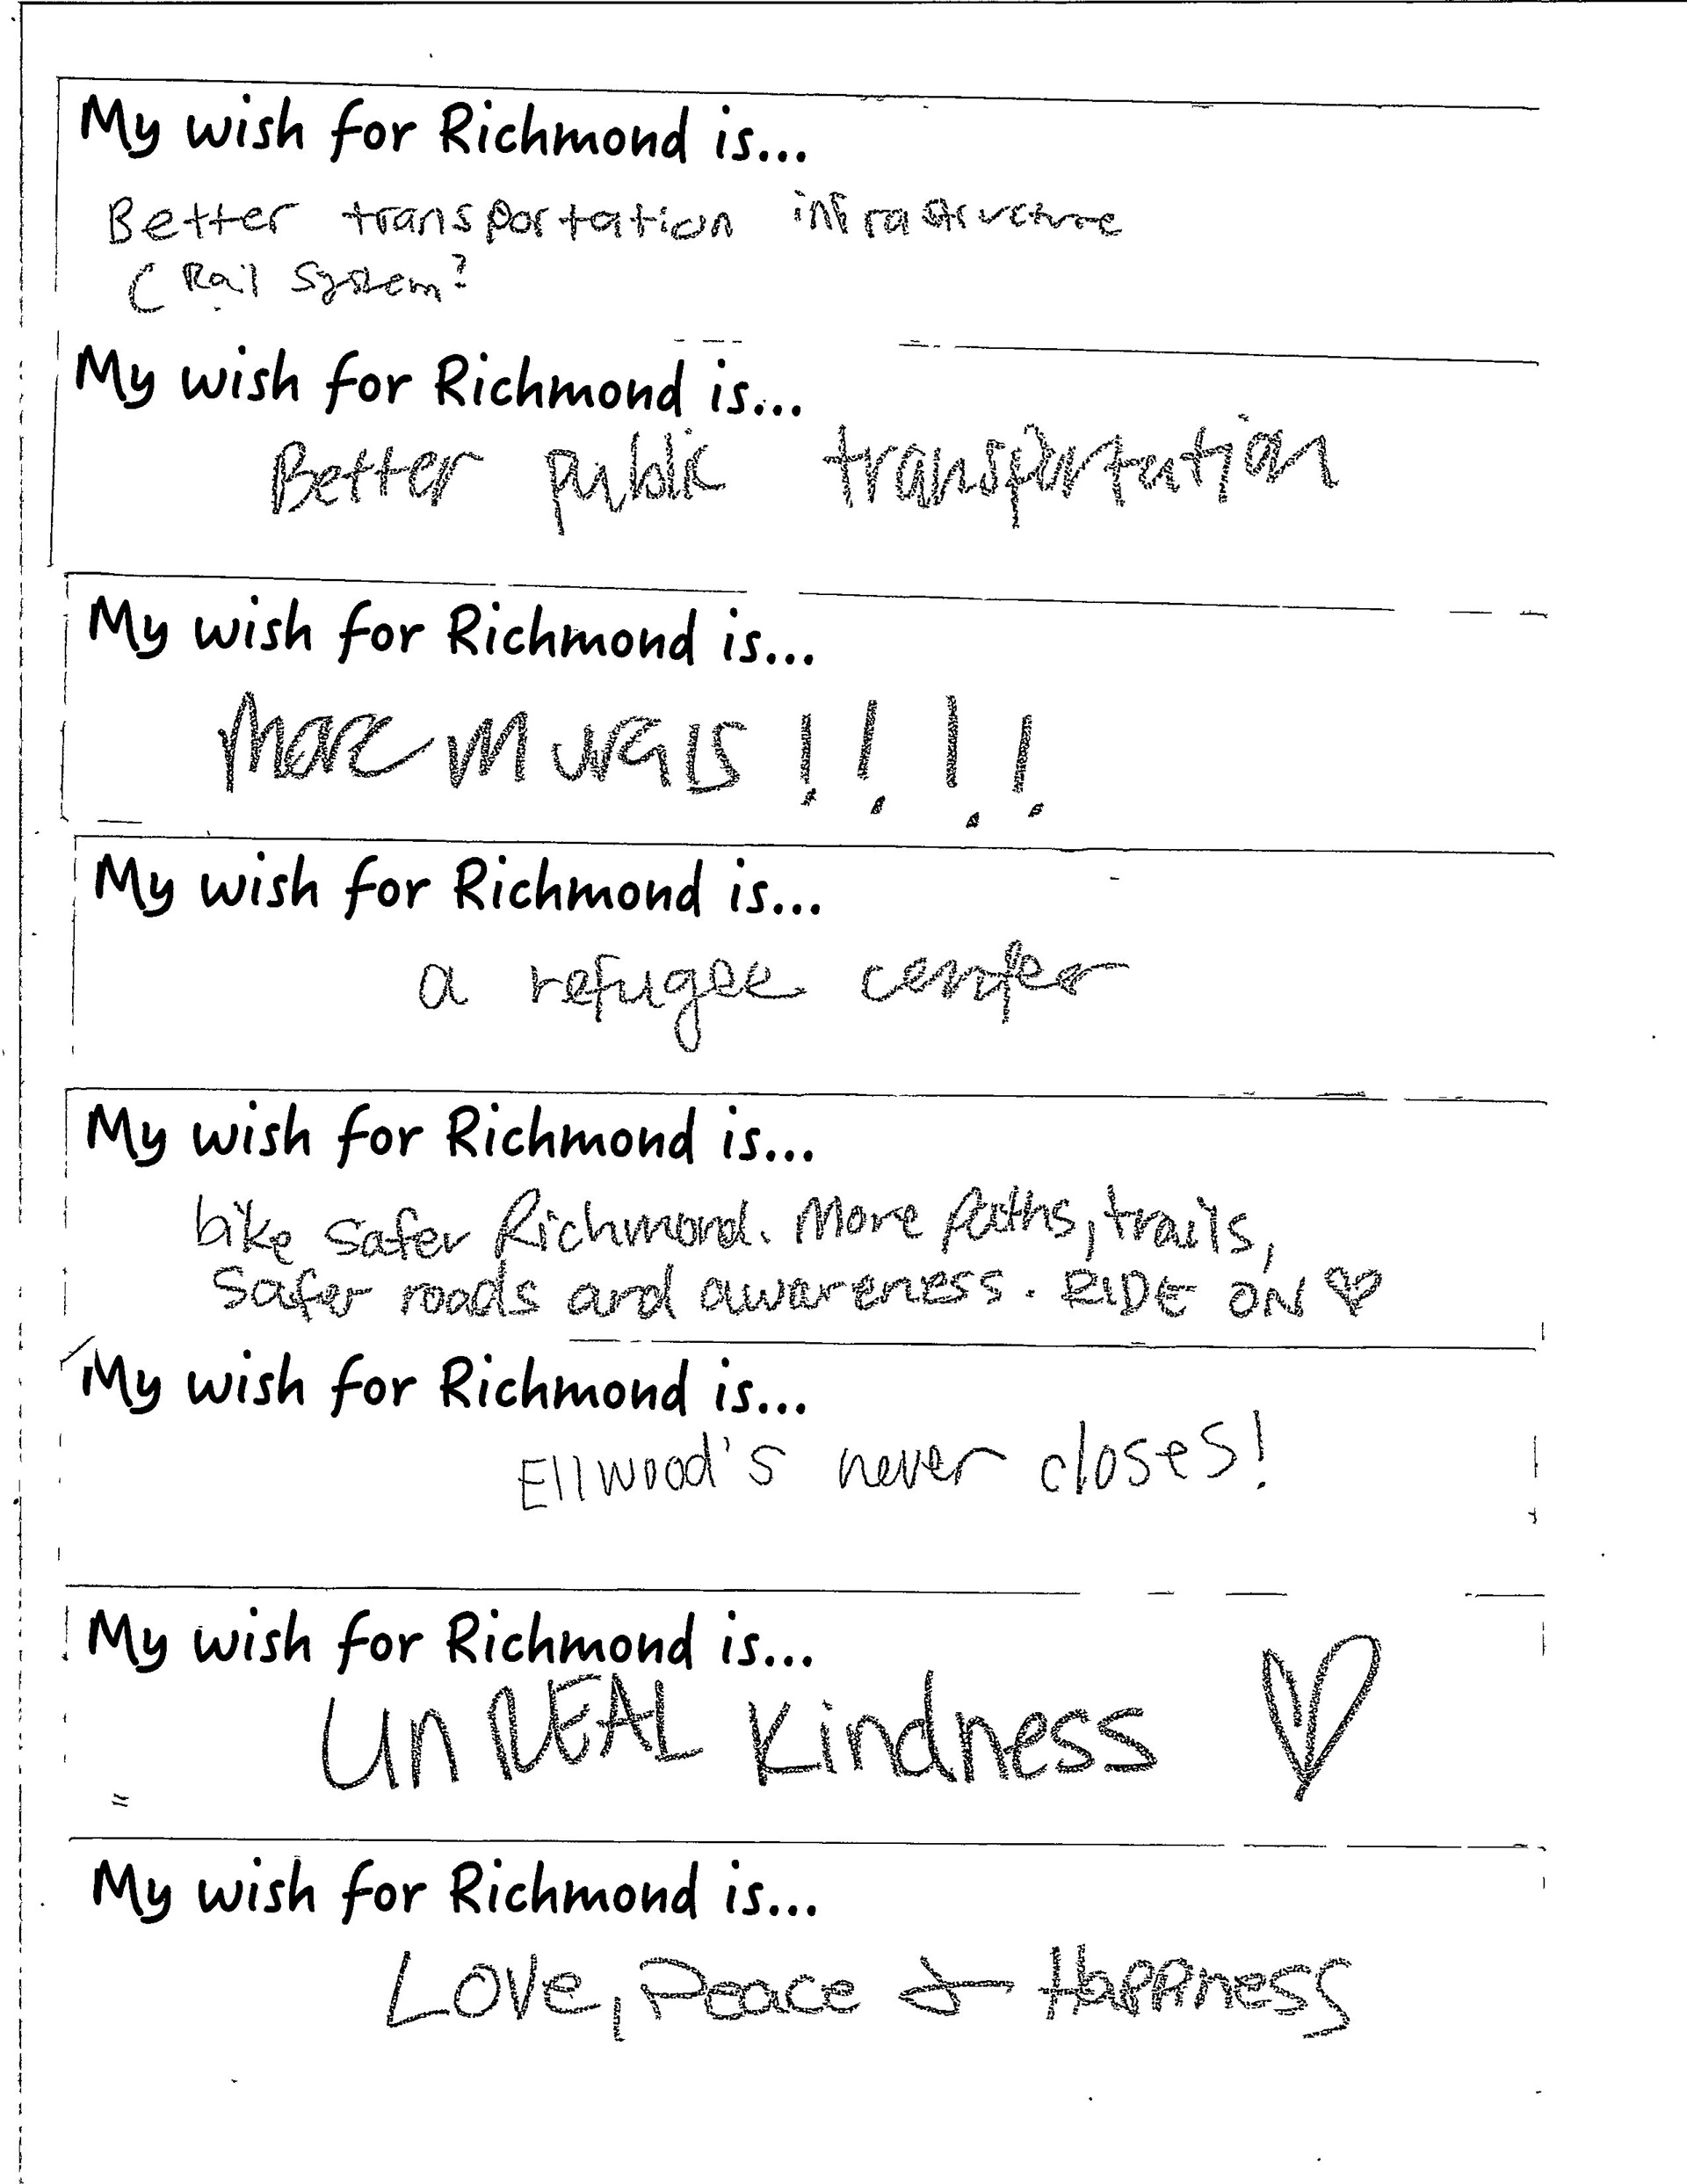 My wish for Richmond is...
Better transportation infrastructure
( Rail System?
My wish for Richmond is...
Better public transportation
My wish for Richmond is...
More murals ! ! ! !
My wish for Richmond is...
a refugee center
My wish for Richmond is...
bike safer Richmond. More paths, trails,
Safer roads and awareness. RIDE ON ♡
My wish for Richmond is...
Ellwood's never closes!
My wish for Richmond is...
UnREAL Kindness ♡
My wish for Richmond is...
Love, Peace & Happiness